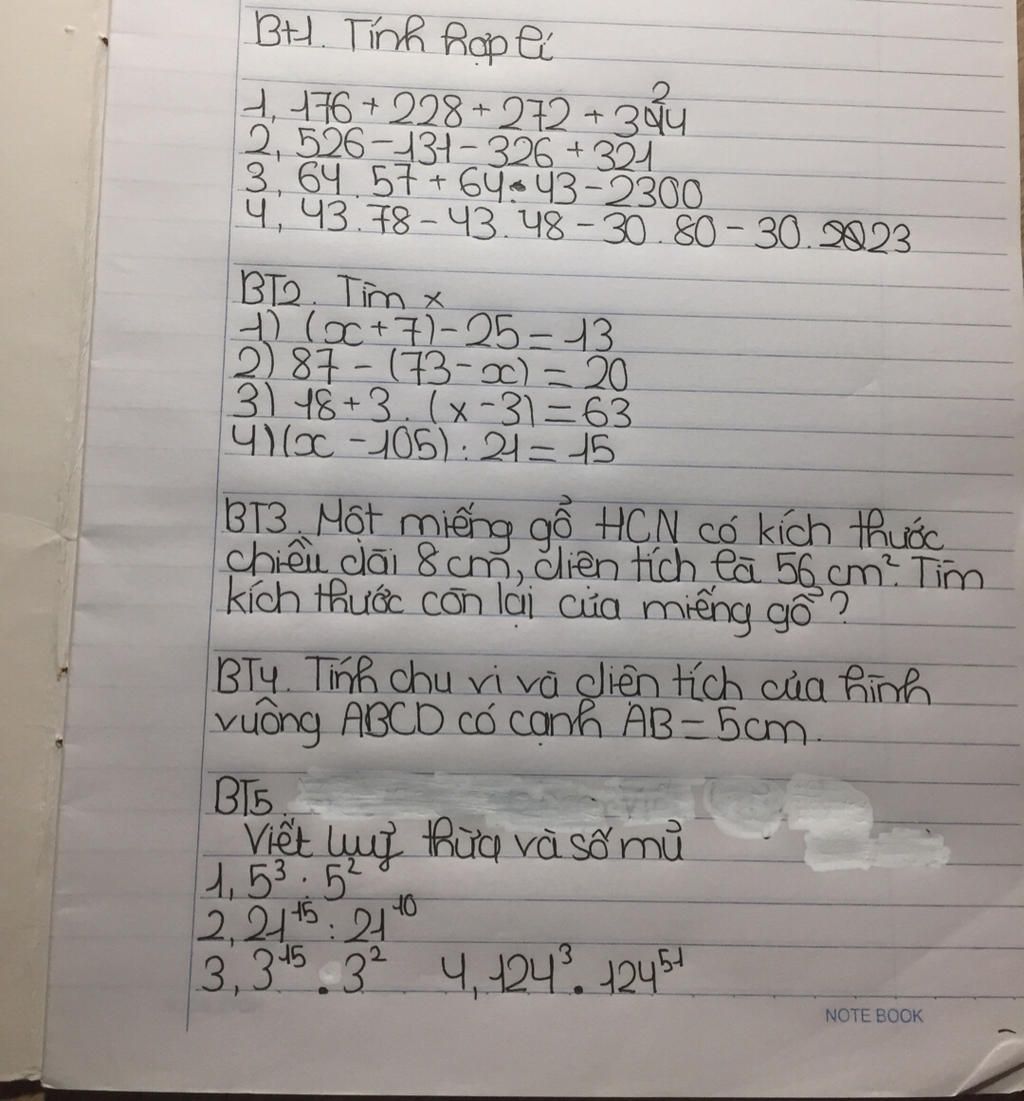 Bt1. Tính hợp lí
1, 176 + 228 + 272 + 324
2, 526 - 131 - 326 + 321
3, 64. 57 + 64. 43 - 2300
4, 43. 78 - 43. 48 - 30. 80 - 30. 2023
BT2. Tìm x
1) (x + 7) - 25 = 13
2) 87 - (73 - x) = 20
3) 18 + 3. (x - 3) = 63
4) (x - 105) : 21 = 15
BT3. Một miếng gổ HCN có kích thước
chiều dài 8cm, diện tích là 56 cm². Tìm
kích thước còn lại của miếng gổ ?
BT4. Tính chu vi và diện tích của hình
vuông ABCD có cạnh AB = 5cm.
BT5.
Viết luỹ thừa và số mủ
1, 5³ : 5²
2, 21¹⁵ : 21¹⁰
3, 3¹⁵ . 3² 4, 124³ . 124⁵¹
NOTE BOOK